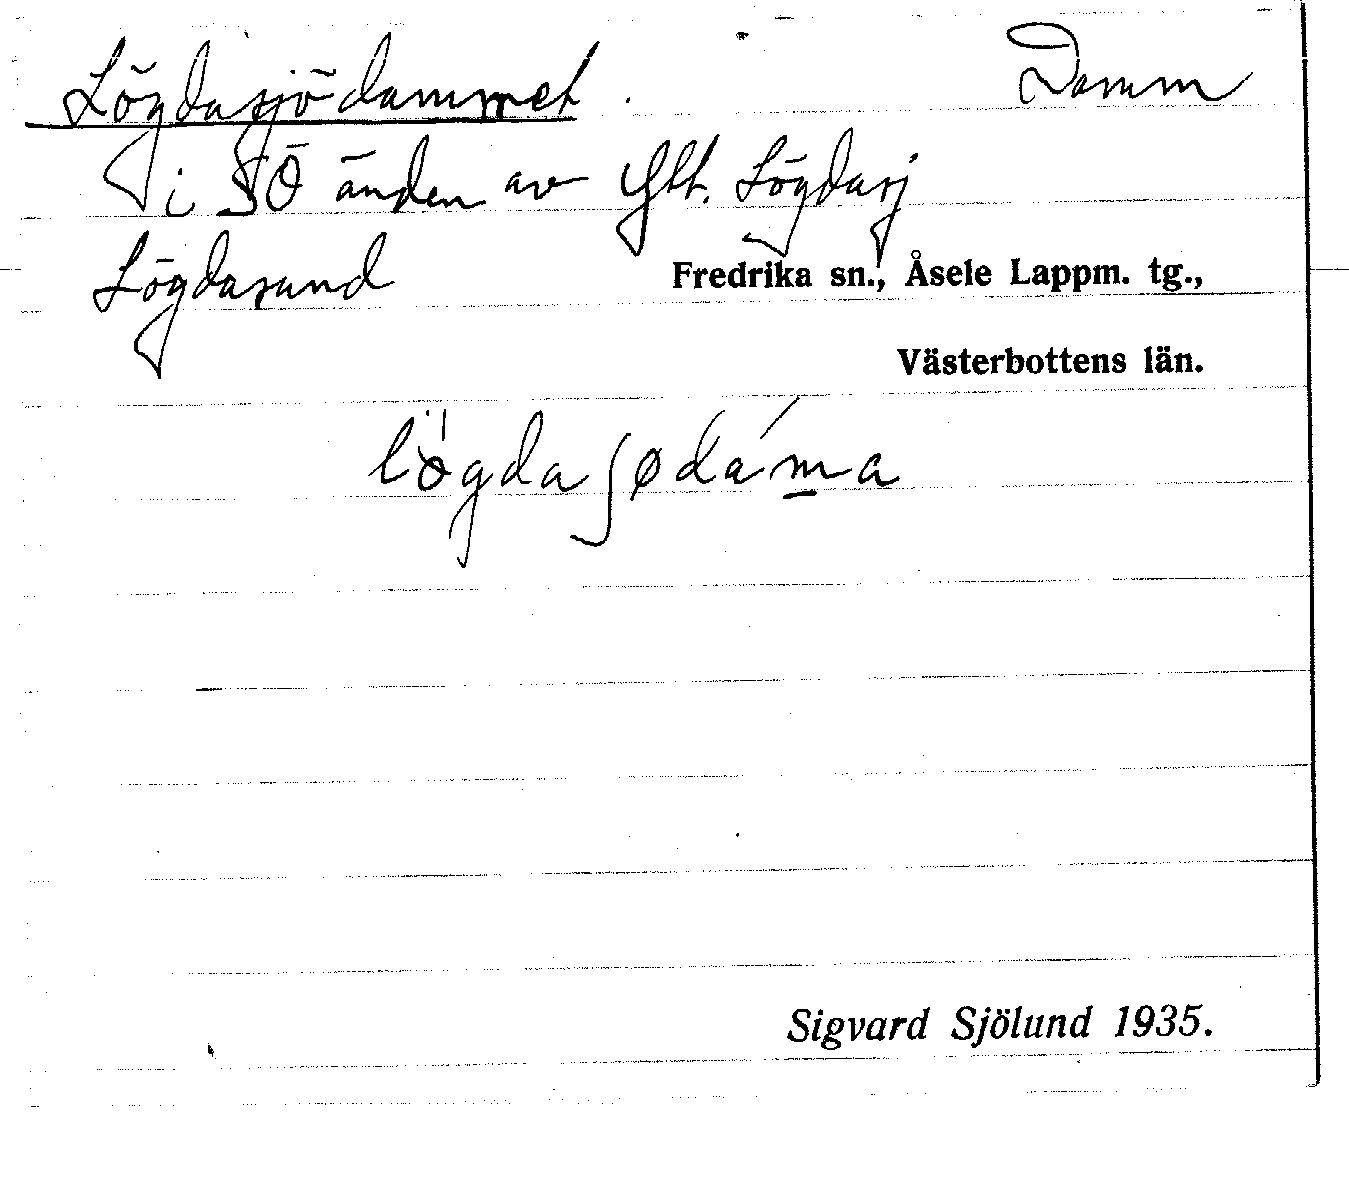 Lögdasjödammet. Damm
i SÖ änden av Ytt. Lögdasj
Lögdasund
Fredrika sn., Åsele Lappm. tg.,
Västerbottens län.
lögdaʃødáma
Sigvard Sjölund 1935.